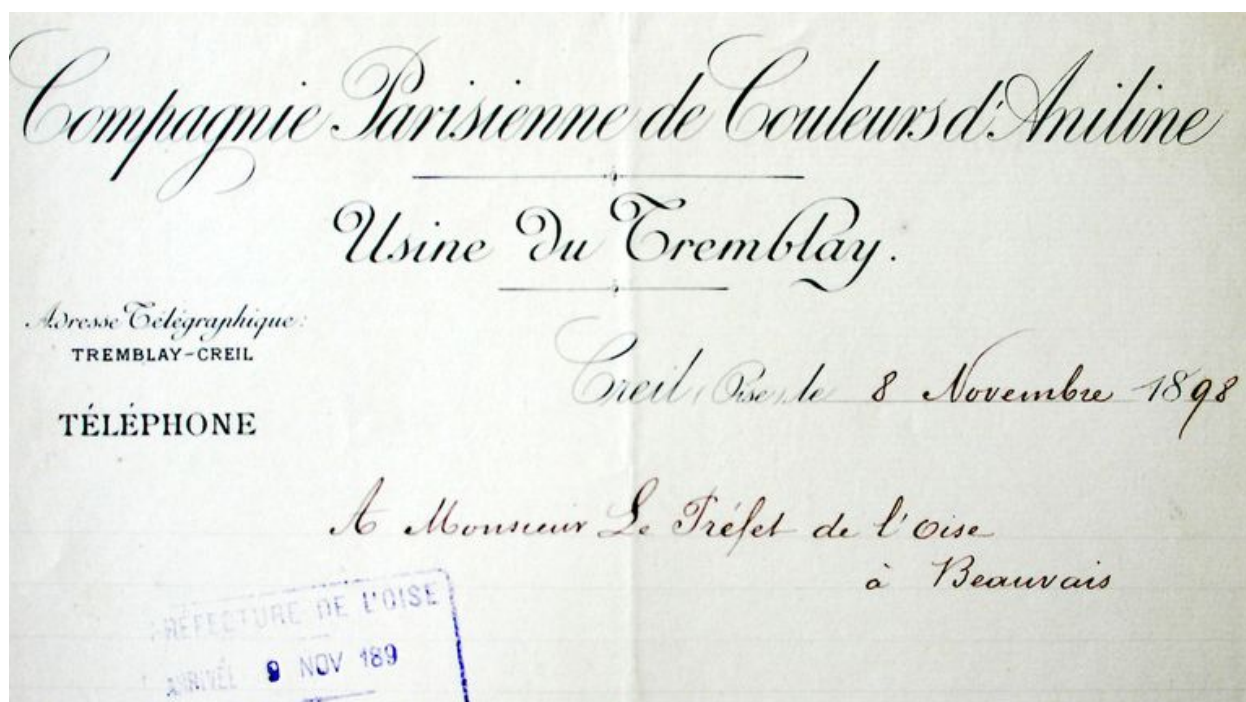 Compagnie Parisienne de Couleurs d'Aniline
Usine du Tremblay.
Adresse Télégraphique:
TREMBLAY-CREIL
TÉLÉPHONE
Creil, (Oise), le 8 Novembre 1898
A Monsieur Le Préfet de l'Oise
à Beauvais
PRÉFECTURE DE L'OISE
ARRIVÉE 9 NOV 189